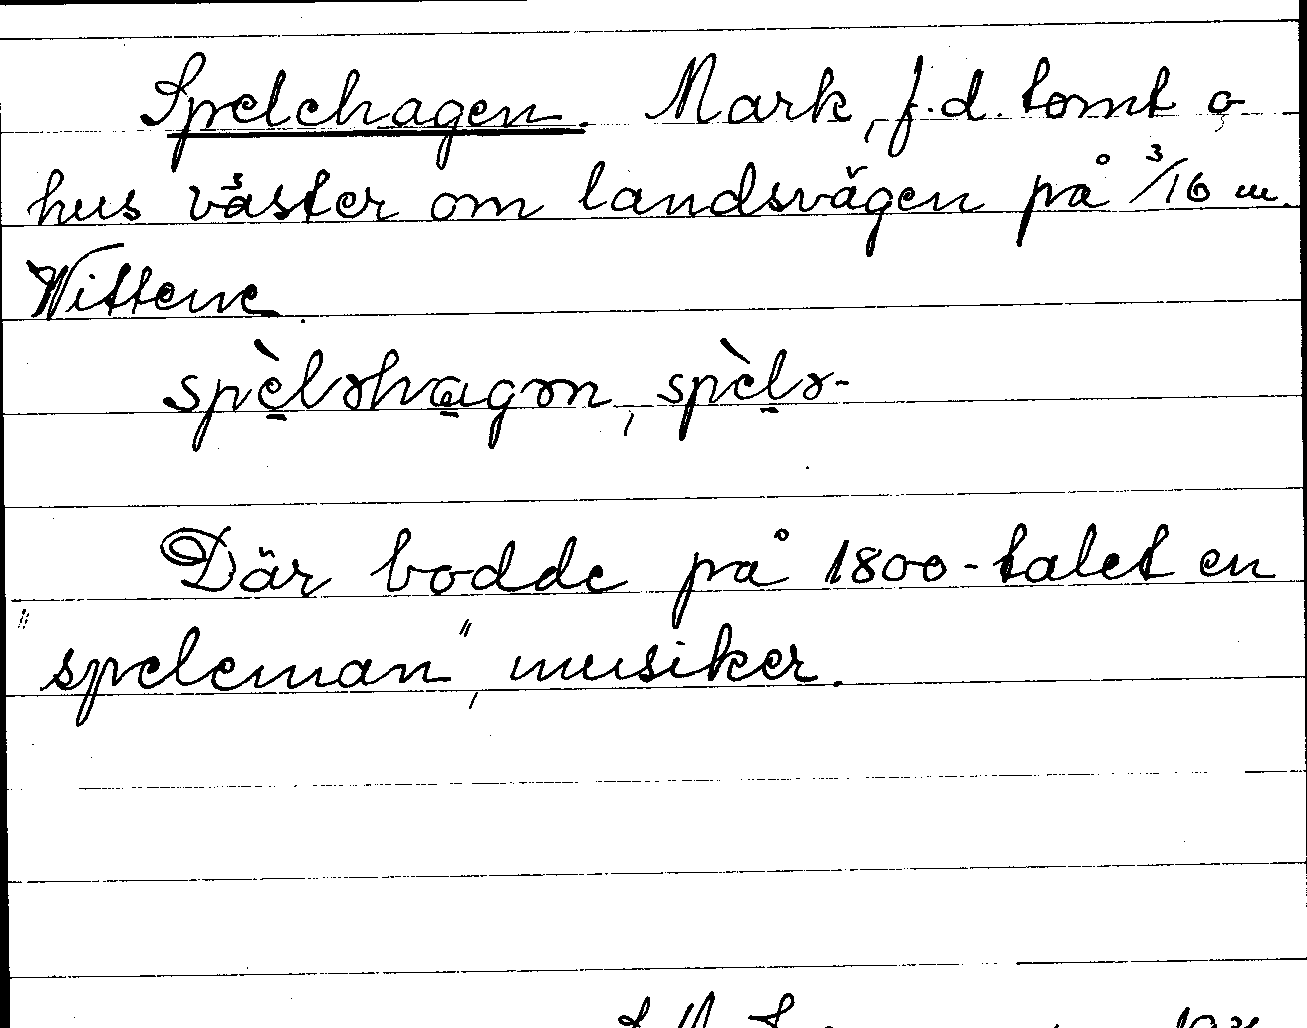 Spelehagen. Mark, f.d. tomt o
hus väster om landsvägen på 3/16 m.
Wittene.
spèləhagən, spèlə-
Där bodde på 1800-talet en
"speleman", musiker.